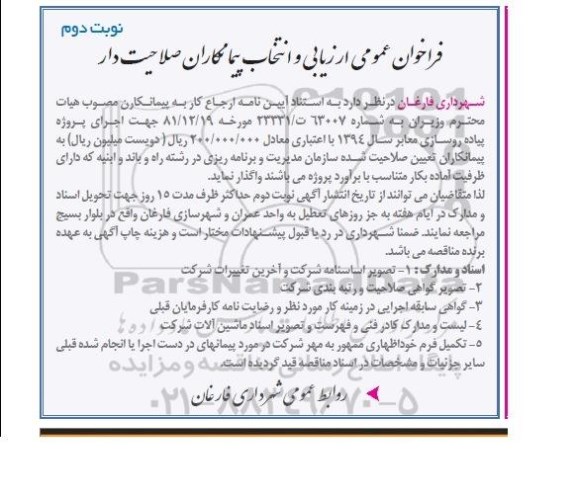 نوبت دوم
فراخوان عمومی ارزیابی و انتخاب پیمانکاران صلاحیت دار
شهرداری فارغان در نظر دارد به استناد آیین نامه ارجاع کار به پیمانکارن مصوب هیات
محترم وزیران به شماره ۶۳۰۰۷ ت/۲۳۳۳۱ مورخه ۸۱/۱۲/۱۹ جهت اجرای پروژه
پیاده روسازی معابر سال ۱۳۹۴ با اعتباری معادل ۲۰۰/۰۰۰/۰۰۰ ریال ( دویست میلیون ریال) به
پیمانکاران تعیین صلاحیت شده سازمان مدیریت و برنامه ریزی در رشته راه و باند و ابنیه که دارای
ظرفیت آماده بکار متناسب با برآورد پروژه می باشند واگذار نماید.
لذا متقاضیان می توانند از تاریخ انتشار آگهی نوبت دوم حداکثر ظرف مدت ۱۵ روز جهت تحویل اسناد
و مدارک در ایام هفته به جز روزهای تعطیل به واحد عمران و شهرسازی فارغان واقع در بلوار بسیج
مراجعه نمایند. ضمنا شهرداری در رد یا قبول پیشنهادات مختار است و هزینه چاپ آگهی به عهده
برنده مناقصه می باشد.
اسناد و مدارک : ۱- تصویر اساسنامه شرکت و آخرین تغییرات شرکت
۲- تصویر گواهی صلاحیت و رتبه بندی شرکت
۳- گواهی سابقه اجرایی در زمینه کار مورد نظر و رضایت نامه کارفرمایان قبلی
۴- لیست و مدارک کادر فنی و فهرست و تصویر اسناد ماشین آلات شرکت
۵- تکمیل فرم خوداظهاری ممهور به مهر شرکت در مورد پیمانهای در دست اجرا یا انجام شده قبلی
سایر جزئیات و مشخصات در اسناد مناقصه قید گردیده است.
روابط عمومی شهرداری فارغان